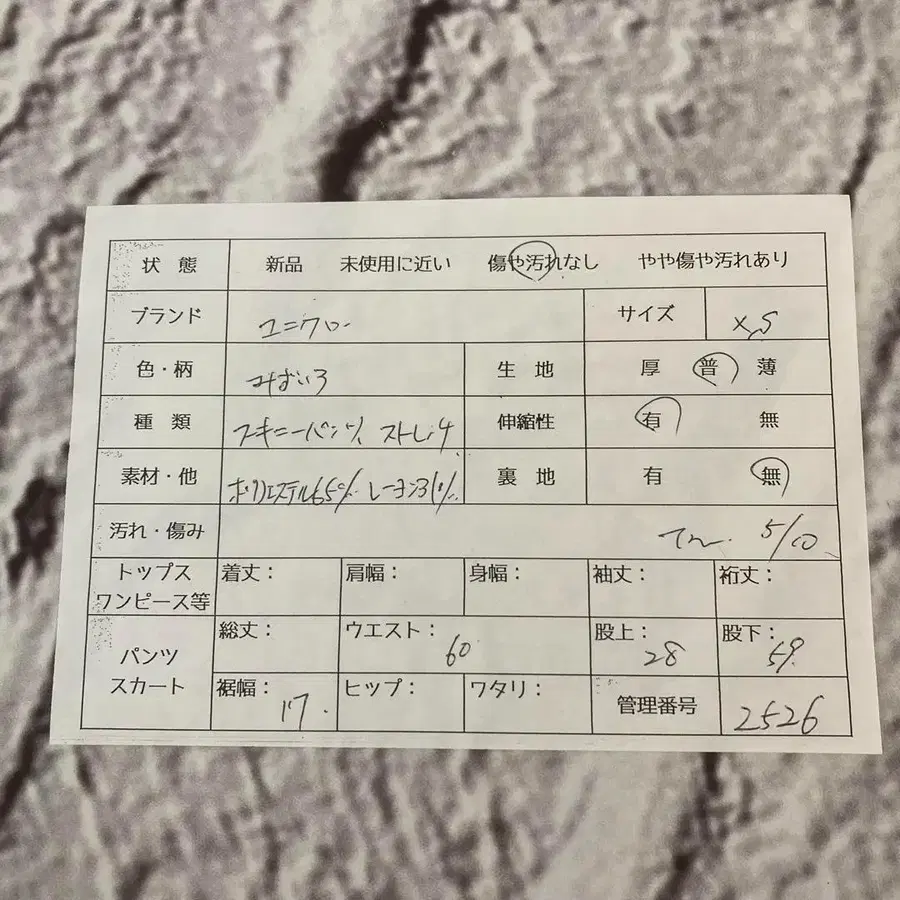 状態 新品 未使用に近い 傷や汚れなし やや傷や汚れあり
ブランド ユニクロ サイズ XS
色・柄 生地 厚 普 薄
種類 スキニーパンツ ストレッチ 伸縮性 有 無
素材・他 ポリエステル65% レーヨン31% 裏地 有 無
汚れ・傷み 5/10
トップス 着丈： 肩幅： 身幅： 袖丈： 裄丈：
ワンピース等
パンツ 総丈： ウエスト：60 股上：28 股下：59
スカート 裾幅：17. ヒップ： ワタリ： 管理番号 2526